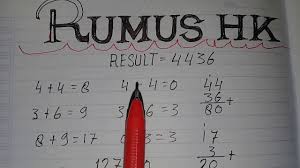 RUMUS HK
RESULT = 4436
4 + 4 = 8 4 4 = 0 44
3 + 6 = 9 3 = 3 36 +
80
8 + 9 = 17 0 3 = 3 17
3 +
127 20